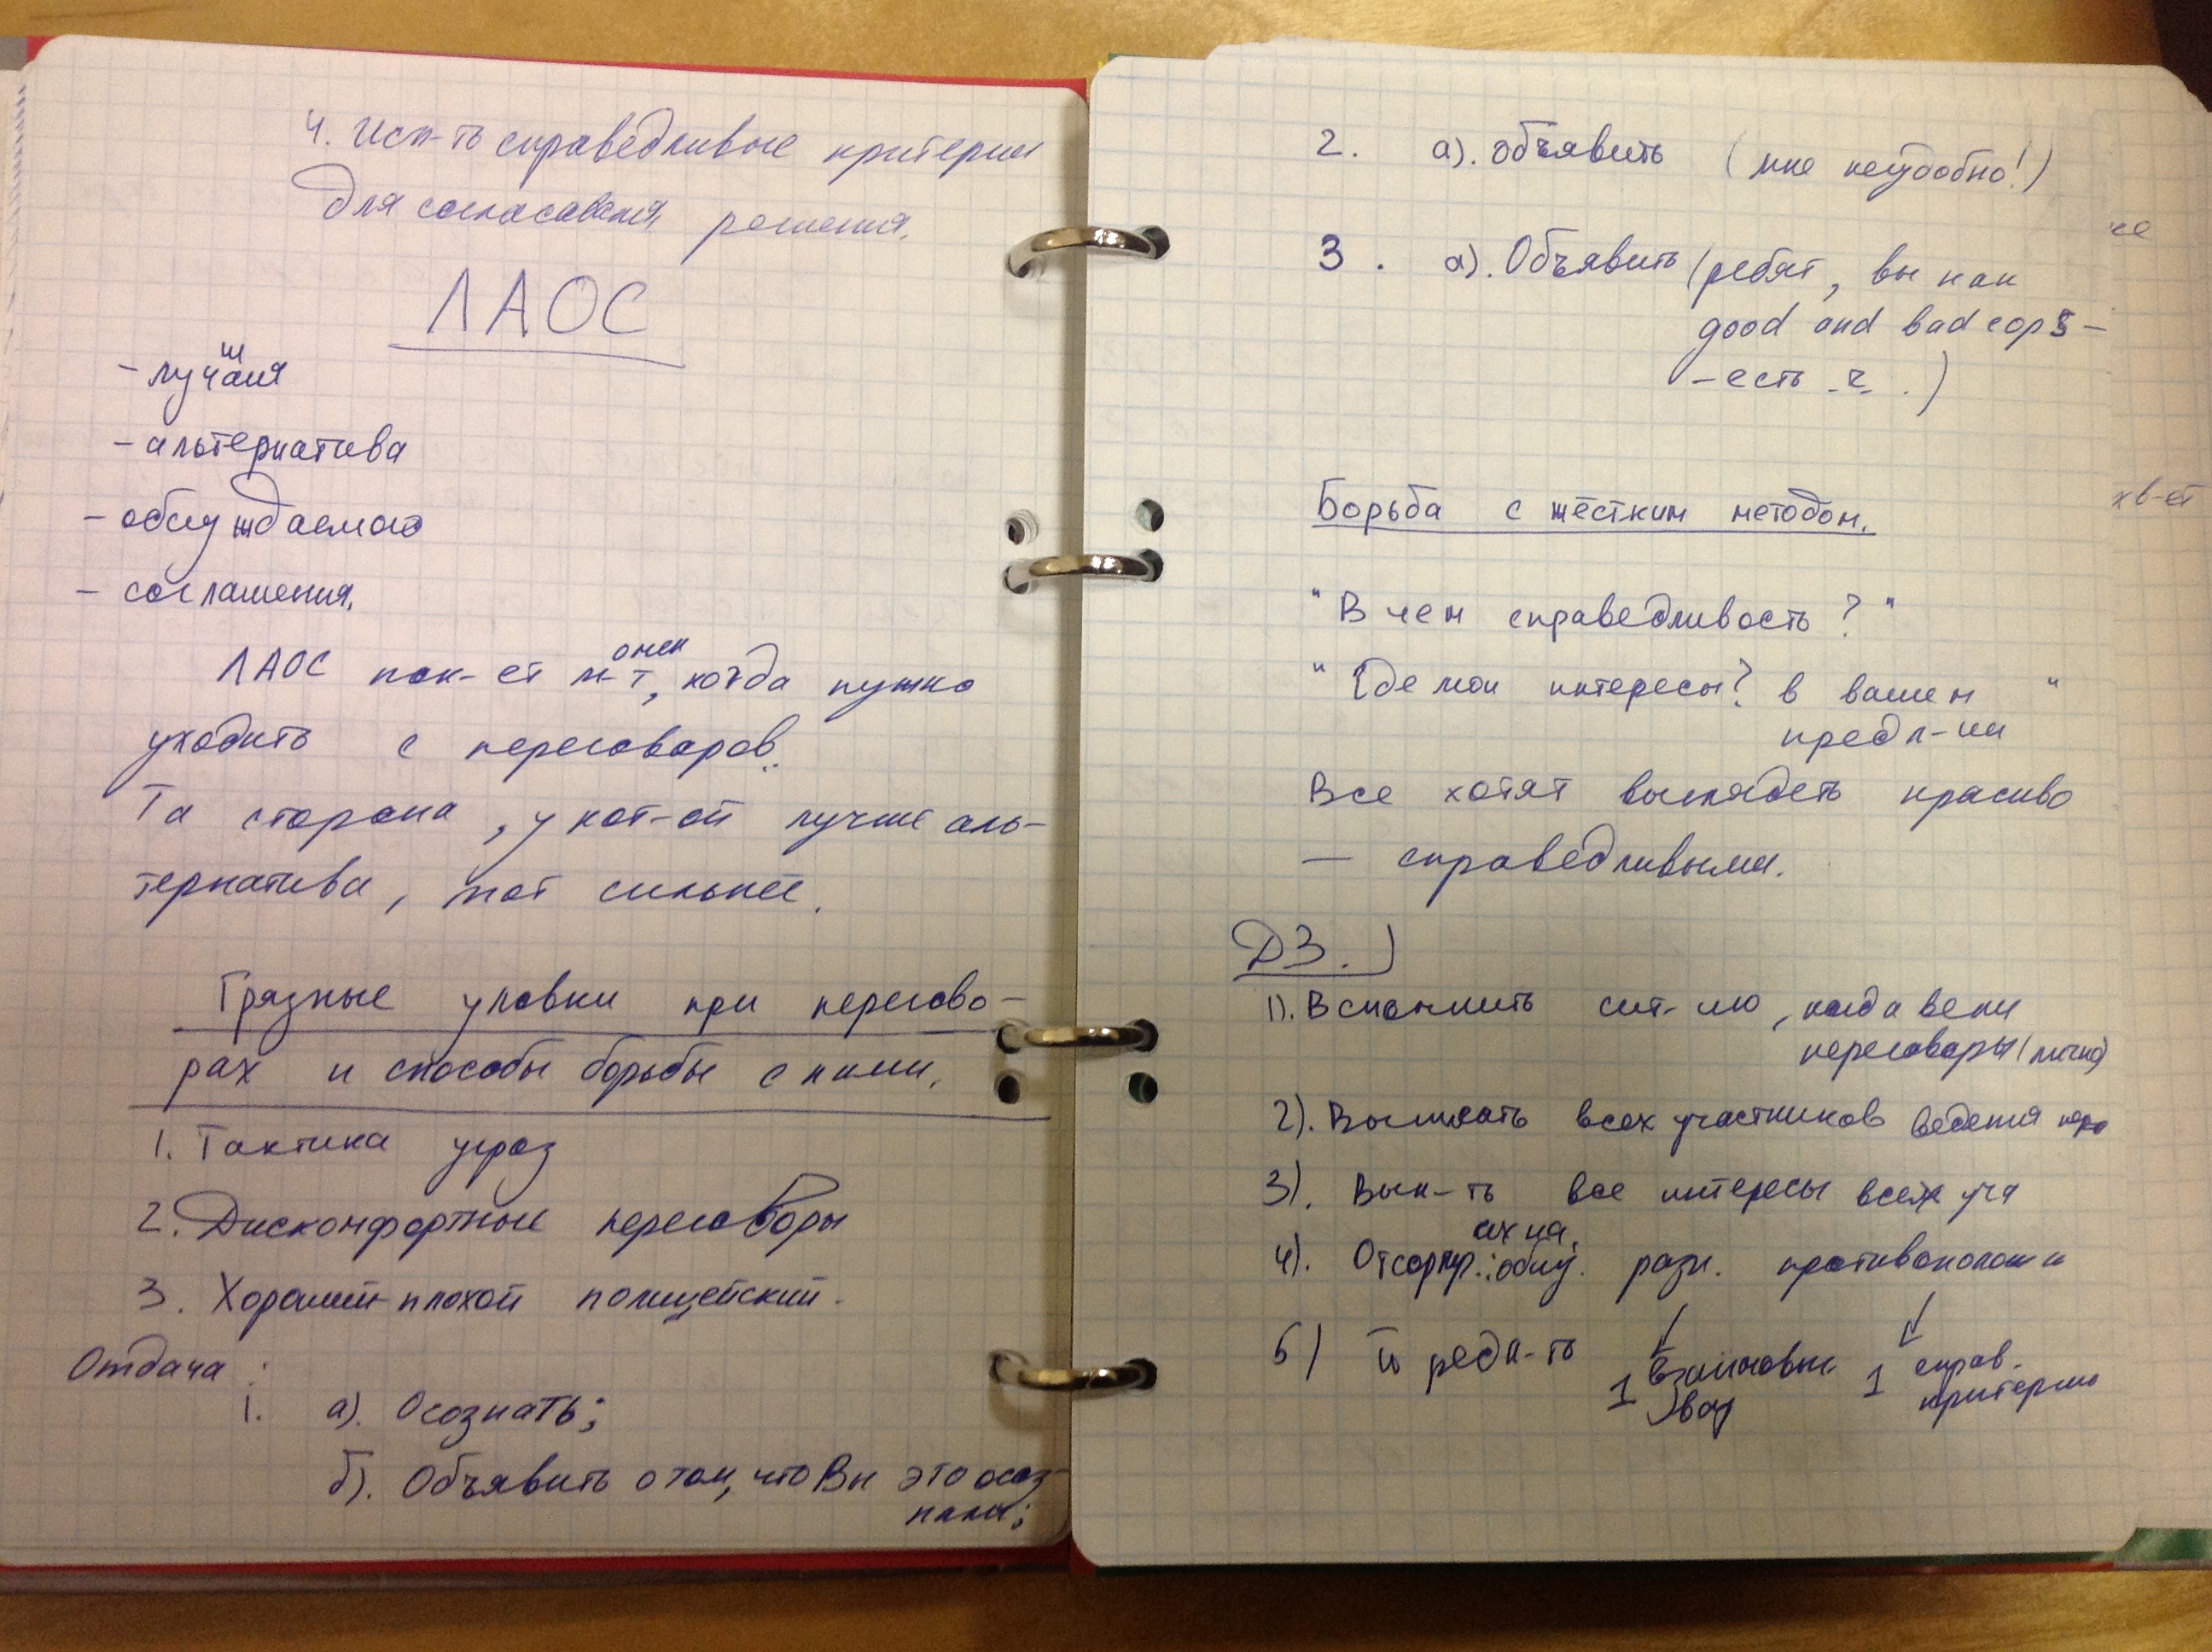 4. Исп-ть справедливые критерии
для согласования решения.
ЛАОС
- лучшая
- альтернатива
- обсуждаемого
- соглашения.
ЛАОС пок-ет момент, когда нужно
уходить с переговоров.
Та сторона, у кот-ой лучше аль-
тернатива, тот сильнее.
Грязные уловки при перегово-
рах и способы борьбы с ними.
1. Тактика угроз
2. Дискомфортные переговоры
3. Хороший-плохой полицейский.
Отдача:
1. а). Осознать;
б). Объявить о том, что Вы это осоз-
нали;
2. а). Объявить (мне неудобно!)
3. а). Объявить (ребят, вы как
good and bad cops -
- есть
Борьба с жёстким методом.
"В чем справедливость?"
"Где мои интересы? в вашем "
предл-ии
Все хотят выглядеть красиво
— справедливыми.
ДЗ.
1). Вспомнить сит-ию, когда вели
переговоры (лично)
2). Выписать всех участников ведения
3). Вып-ть все интересы всех уча
4). Отсортир.: общ. разн. противополож
5) 1 взаимовыг. 1 справ.
критерию